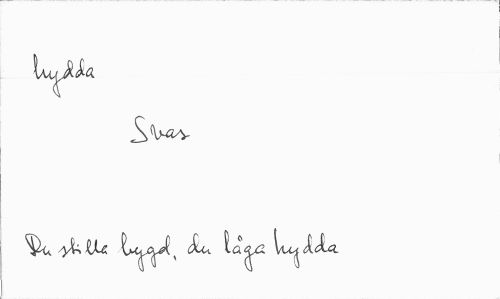 hydda
Svas
Du stilla bygd, du låga hydda